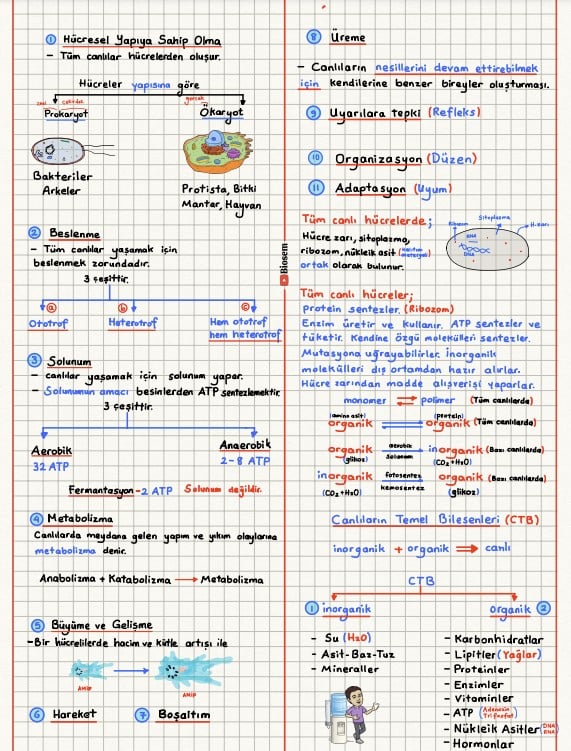 ① Hücresel Yapıya Sahip Olma
- Tüm canlılar hücrelerden oluşur.
Hücreler yapısına göre
çekirdek
Prokaryot
gerçek
Ökaryot
Bakteriler
Arkeler
Protista, Bitki
Mantar, Hayvan
② Beslenme
- Tüm canlılar yaşamak için
beslenmek zorundadır.
3 çeşittir.
a b c
Ototrof
Heterotrof
Hem ototrof
hem heterotrof
③ Solunum
- canlılar yaşamak için solunum yapar.
- Solunumun amacı besinlerden ATP sentezlemektir.
3 çeşittir.
Aerobik
32 ATP
Anaerobik
2-8 ATP
Fermantasyon-2 ATP Solunum değildir.
④ Metabolizma
Canlılarda meydana gelen yapım ve yıkım olaylarına
metabolizma denir.
Anabolizma + Katabolizma → Metabolizma
⑤ Büyüme ve Gelişme
-Bir hücrelilerde hacim ve kütle artışı ile
AMİP
AMİP
⑥ Hareket ⑦ Boşaltım
Biosem
⑧ Üreme
- Canlıların nesillerini devam ettirebilmek
için kendilerine benzer bireyler oluşturması.
⑨ Uyarılara tepki (Refleks)
⑩ Organizasyon (Düzen)
⑪ Adaptasyon (Uyum)
Tüm canlı hücrelerde;
Hücre zarı, sitoplazma,
ribozom, nükleik asit
ortak olarak bulunur.
Ribozom
Sitoplazma
H.zarı
RNA
DNA
Tüm canlı hücreler;
Protein sentezler. (Ribozom)
Enzim üretir ve kullanır. ATP sentezler ve
tüketir. Kendine özgü molekülleri sentezler.
Mutasyona uğrayabilirler. İnorganik
molekülleri dış ortamdan hazır alırlar.
Hücre zarından madde alışverişi yaparlar.
monomer ⇄ polimer (Tüm canlılarda)
(amino asit) (protein)
organik organik (Tüm canlılarda)
organik aerobik inorganik (Bazı canlılarda)
(glikoz) Solunum (CO₂+H₂O)
inorganik fotosentez organik (Bazı canlılarda)
(CO₂+H₂O) kemosentez (glikoz)
Canlıların Temel Bileşenleri (CTB)
inorganik + organik ⇒ canlı
CTB
① inorganik
- Su (H₂O)
- Asit-Baz-Tuz
- Mineraller
organik ②
- Karbonhidratlar
- Lipitler (Yağlar)
- Proteinler
- Enzimler
- Vitaminler
- ATP (Adenozin Trifosfat)
- Nükleik Asitler (DNA RNA)
- Hormonlar